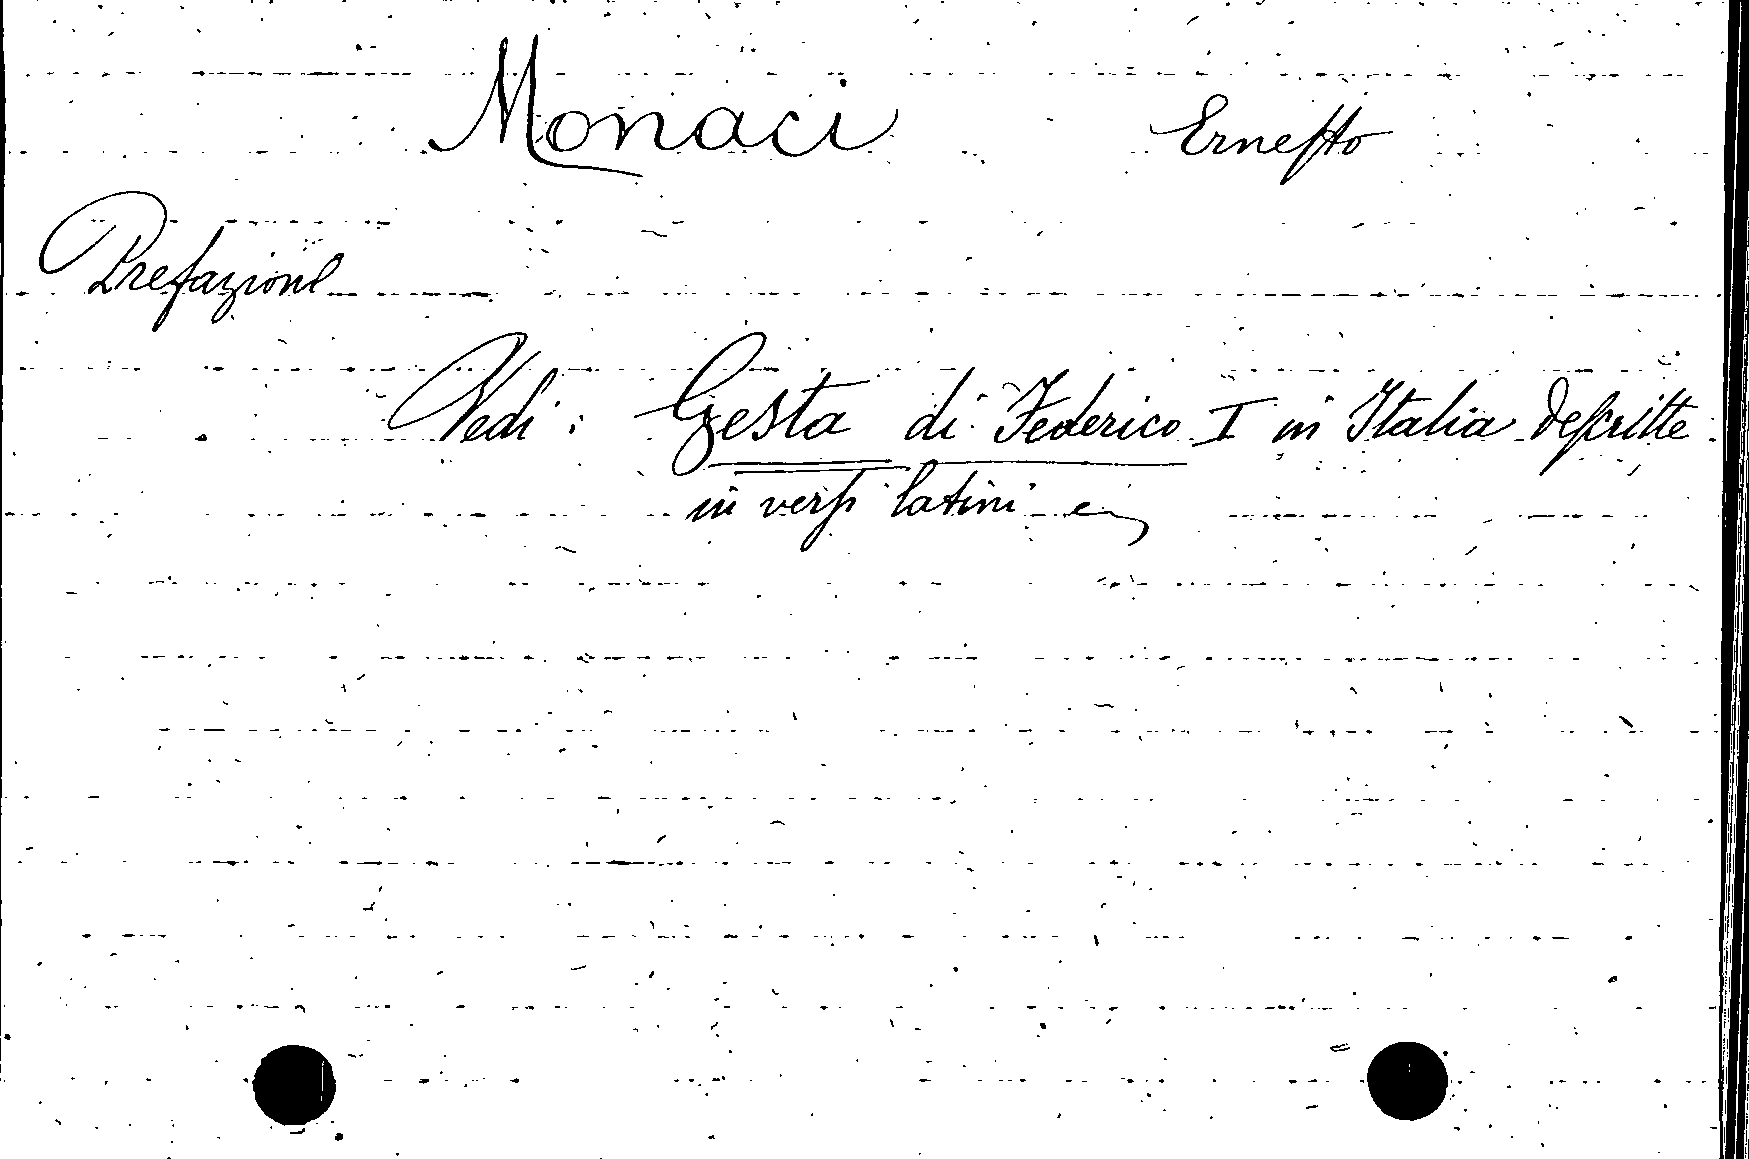 Monaci Ernesto
Prefazione
Vedi: Gesta di Federico I in Italia descritte
in versi latini